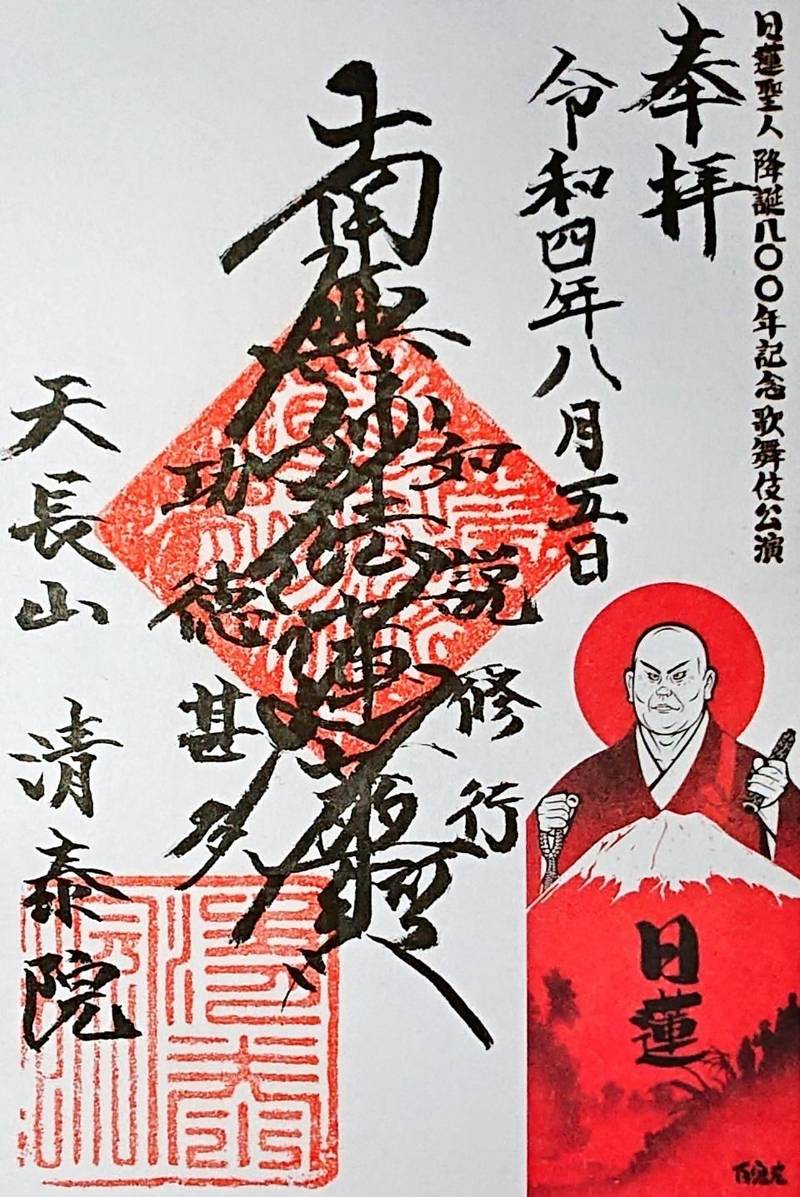 日蓮聖人 降誕八〇〇年記念歌舞伎公演
奉拝
令和四年八月五日
如説修行
南無妙法蓮華経
功徳甚多
天長山 清泰院
日蓮
清泰院